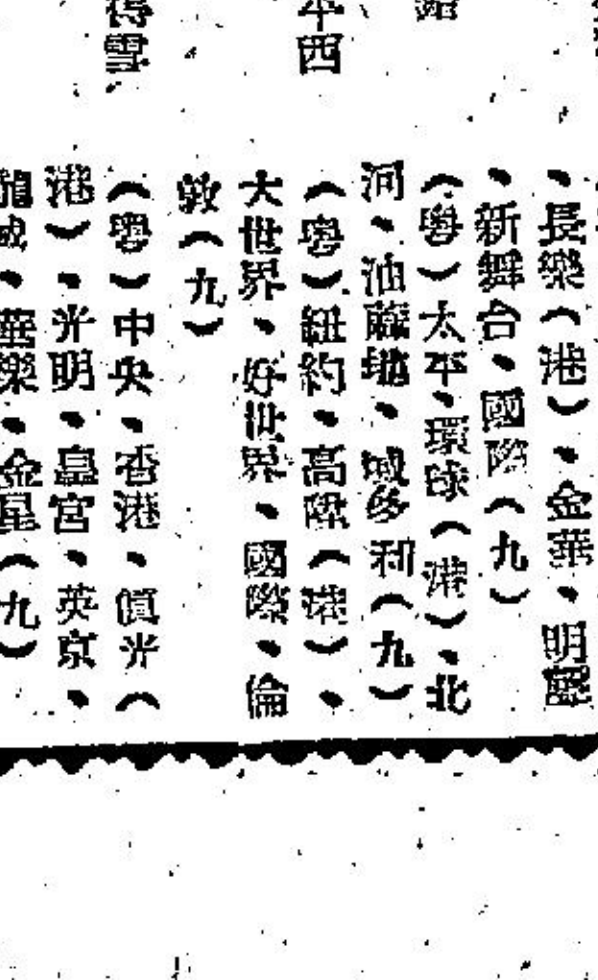 、長樂（港）、金華、明星
、新舞台、國際（九）
（粵）太平、環球（港）、北
河、油蔴地、域多利（九）
（粵）紐約、高陞（港）、
大世界、好世界、國際、倫
敦（九）
（粵）中央、香港、眞光（
港）、光明、皇宮、英京、
龍城、華樂、金星（九）
本西
得雪